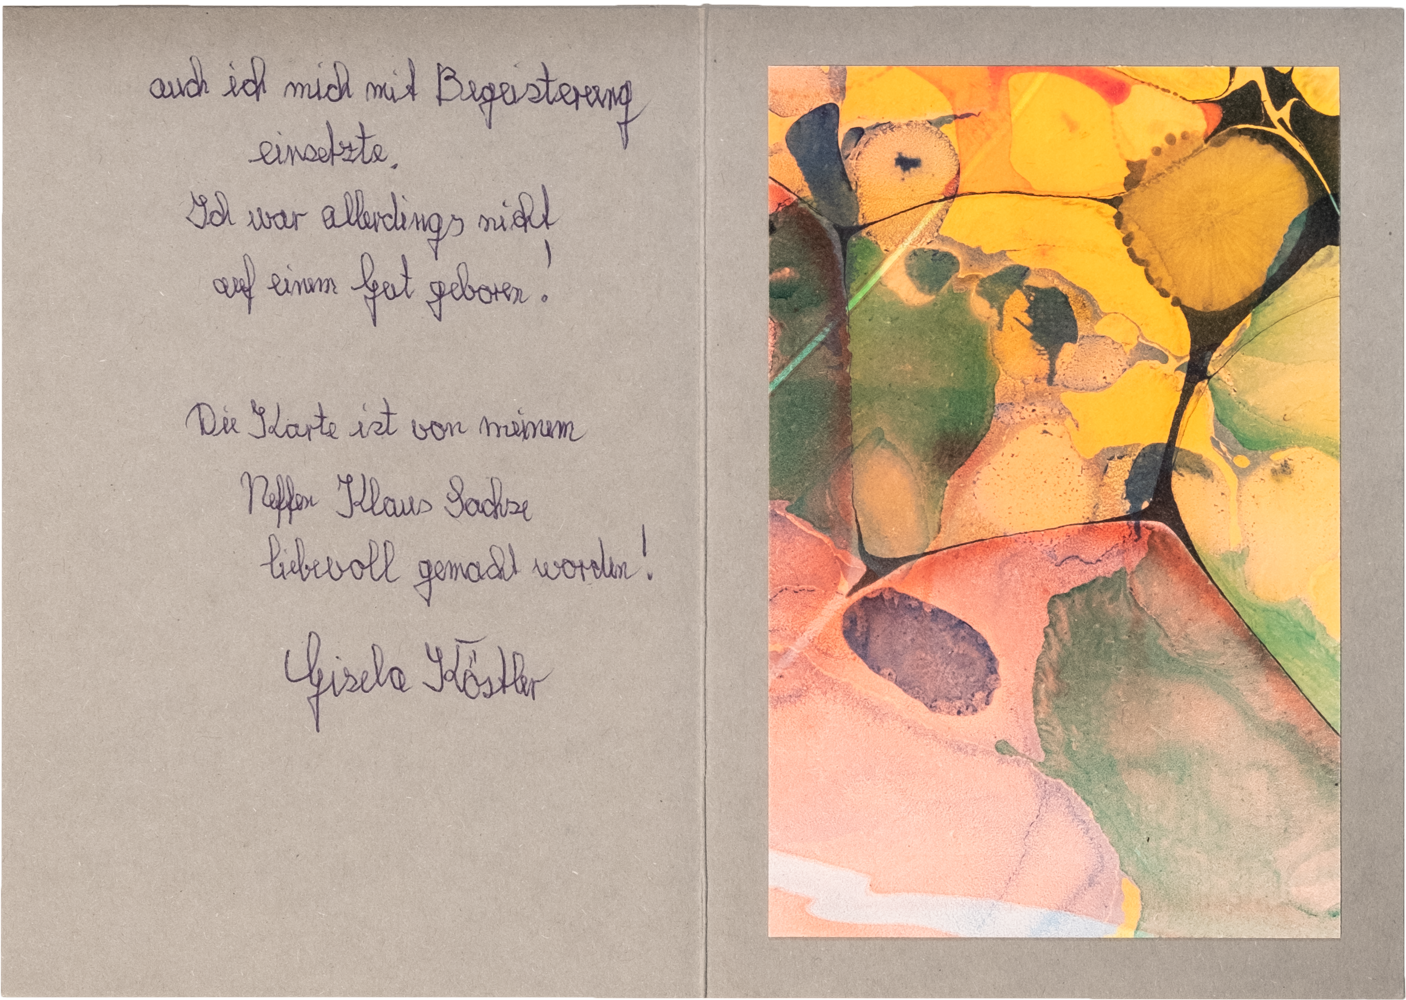 auch ich mich mit Begeisterung
einsetzte.
Ich war allerdings nicht
auf einem Gut geboren!
Die Karte ist von meinem
Neffen Klaus Sachse
liebevoll gemacht worden!
Gisela Köstler